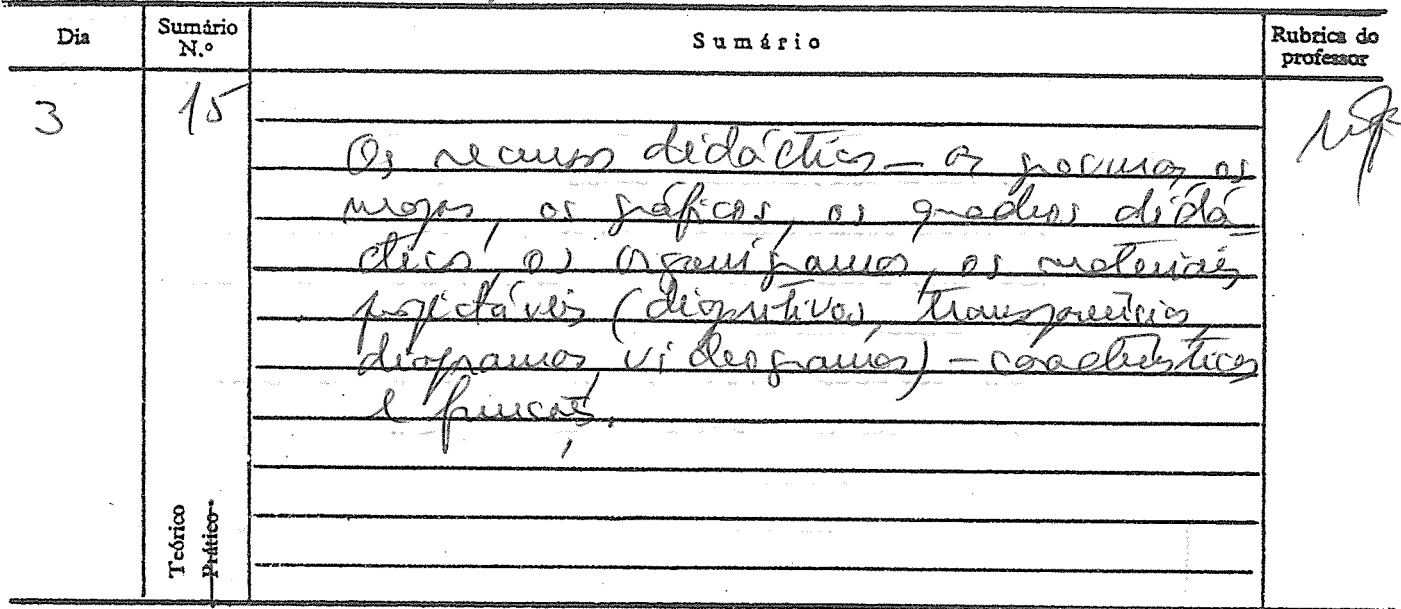 Dia
Sumário N.º
Sumário
Rubrica do professor
3
15
Os recursos didácticos – os os
mapas, os gráficos, os quadros didá
cticos, os organigramas, os materiais
projectáveis (diapositivos, transparências,
diagramas, videogramas) – características
e funções.
Teórico
Prático